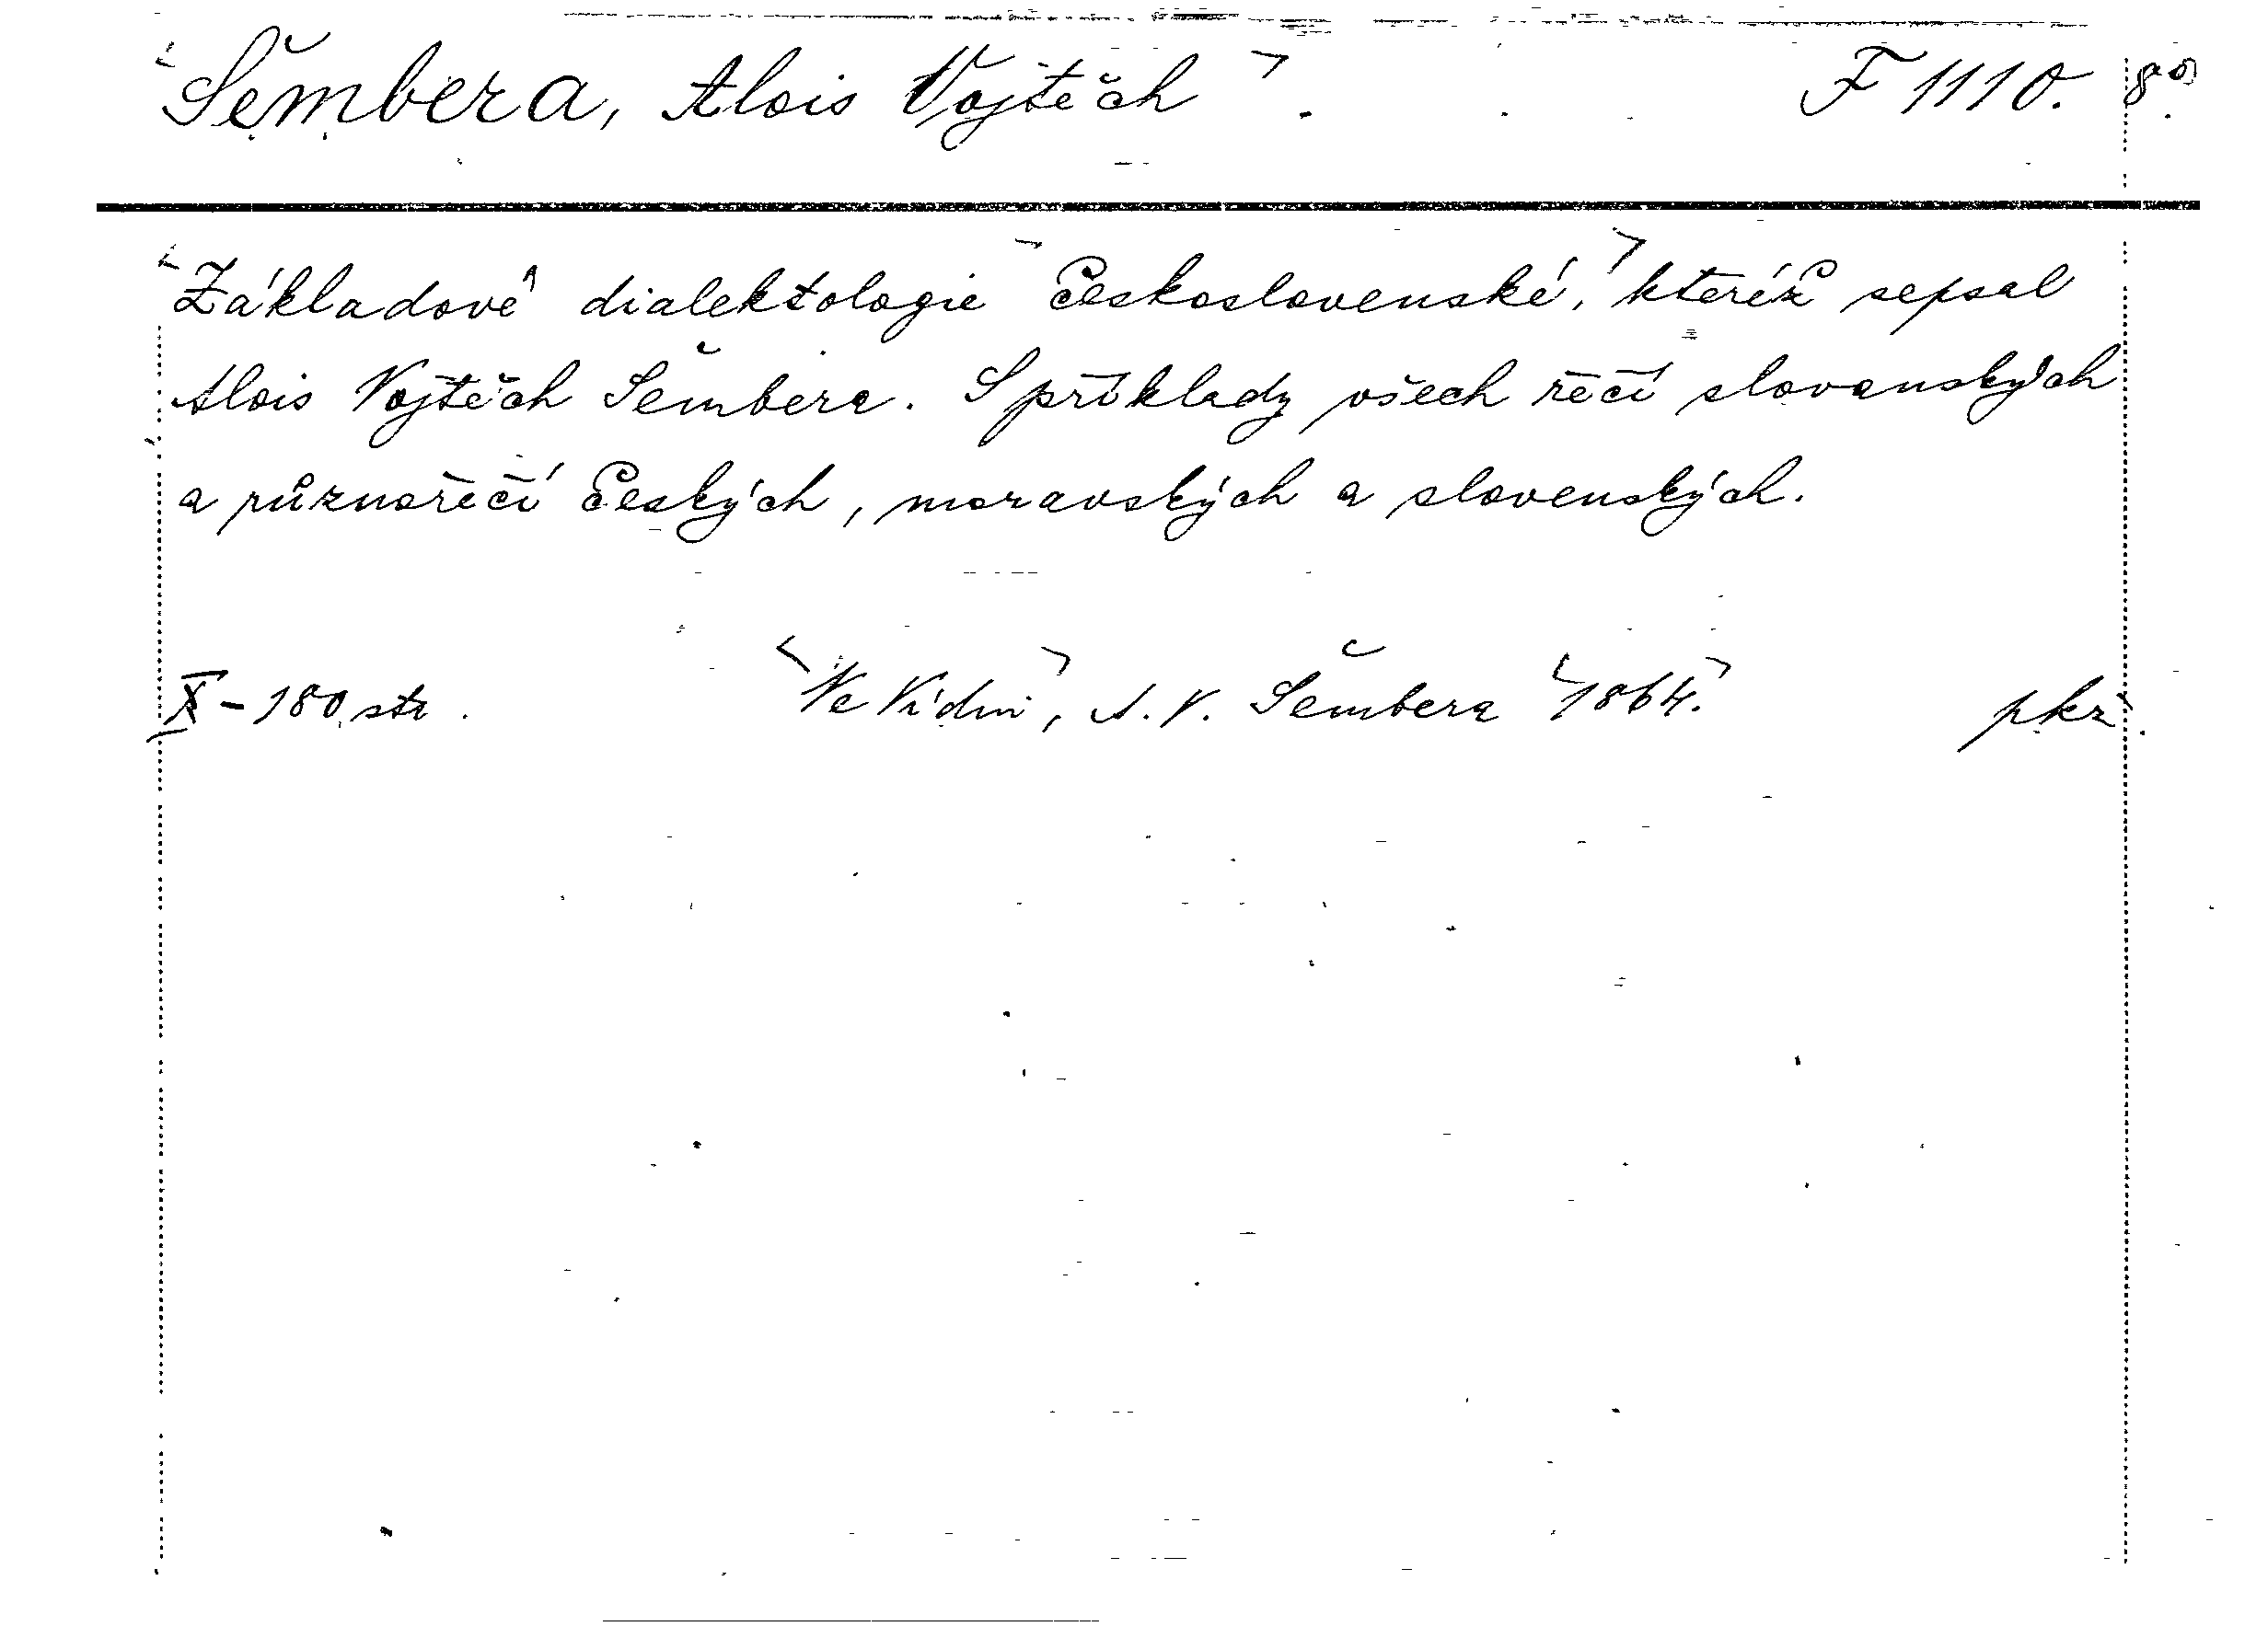 Šembera, Alois Vojtěch. F 1110. 8°.
Základové dialektologie československé, kteréž sepsal
Alois Vojtěch Šembera. S příklady všech řečí slovanských
a různořečí českých, moravských a slovenských.
X - 180 str. Ve Vídni, A. V. Šembera 1864. pkž.